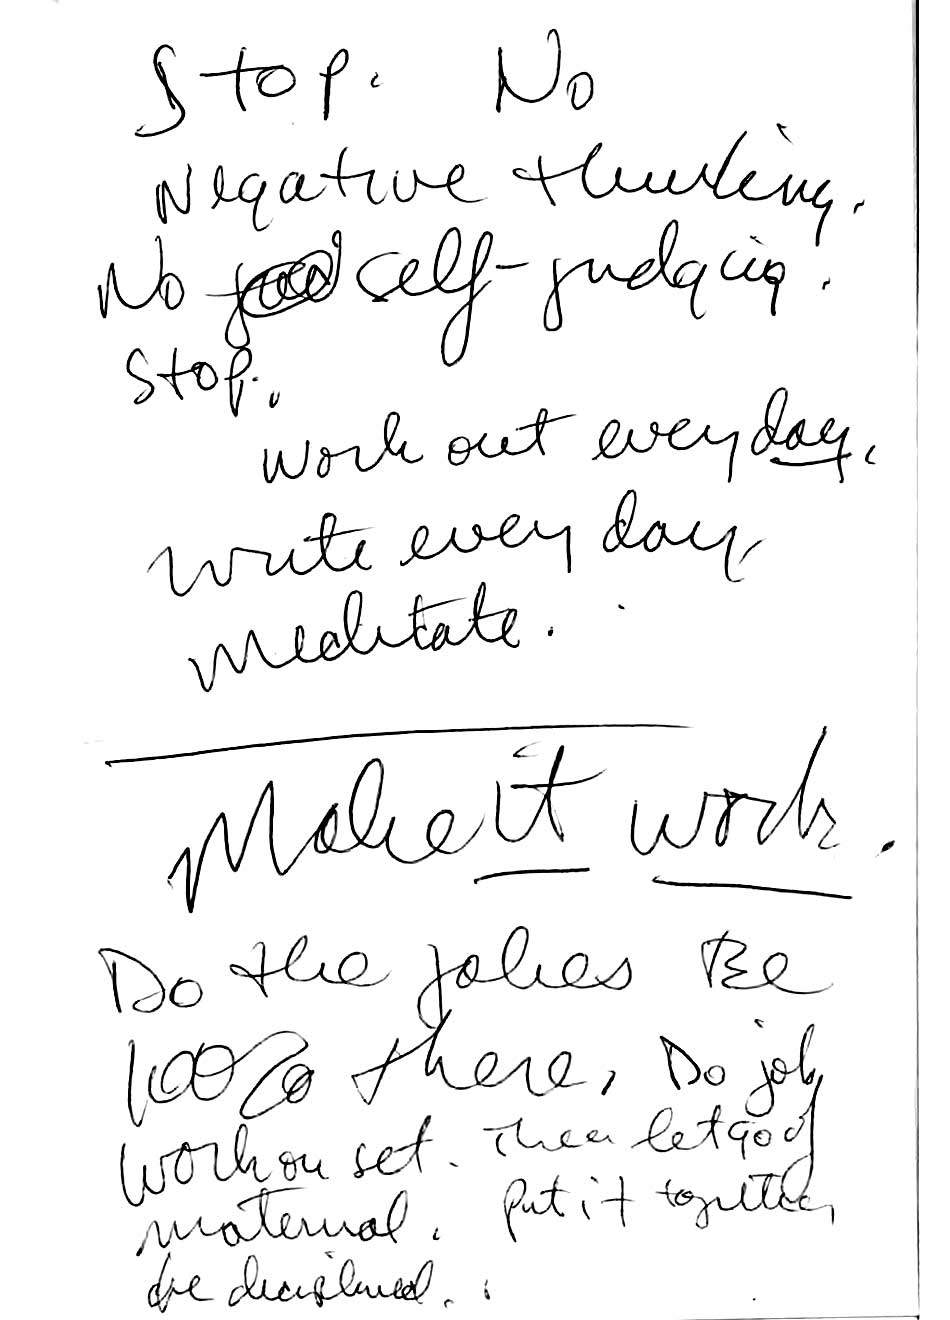 Stop. No
Negative thinking.
No self-judging.
Stop.
Work out every day.
Write every day.
Meditate.
Make it work.
Do the jokes Be
100% there, Do job
work on set. Then let go of
material. Put it together,
be disciplined.